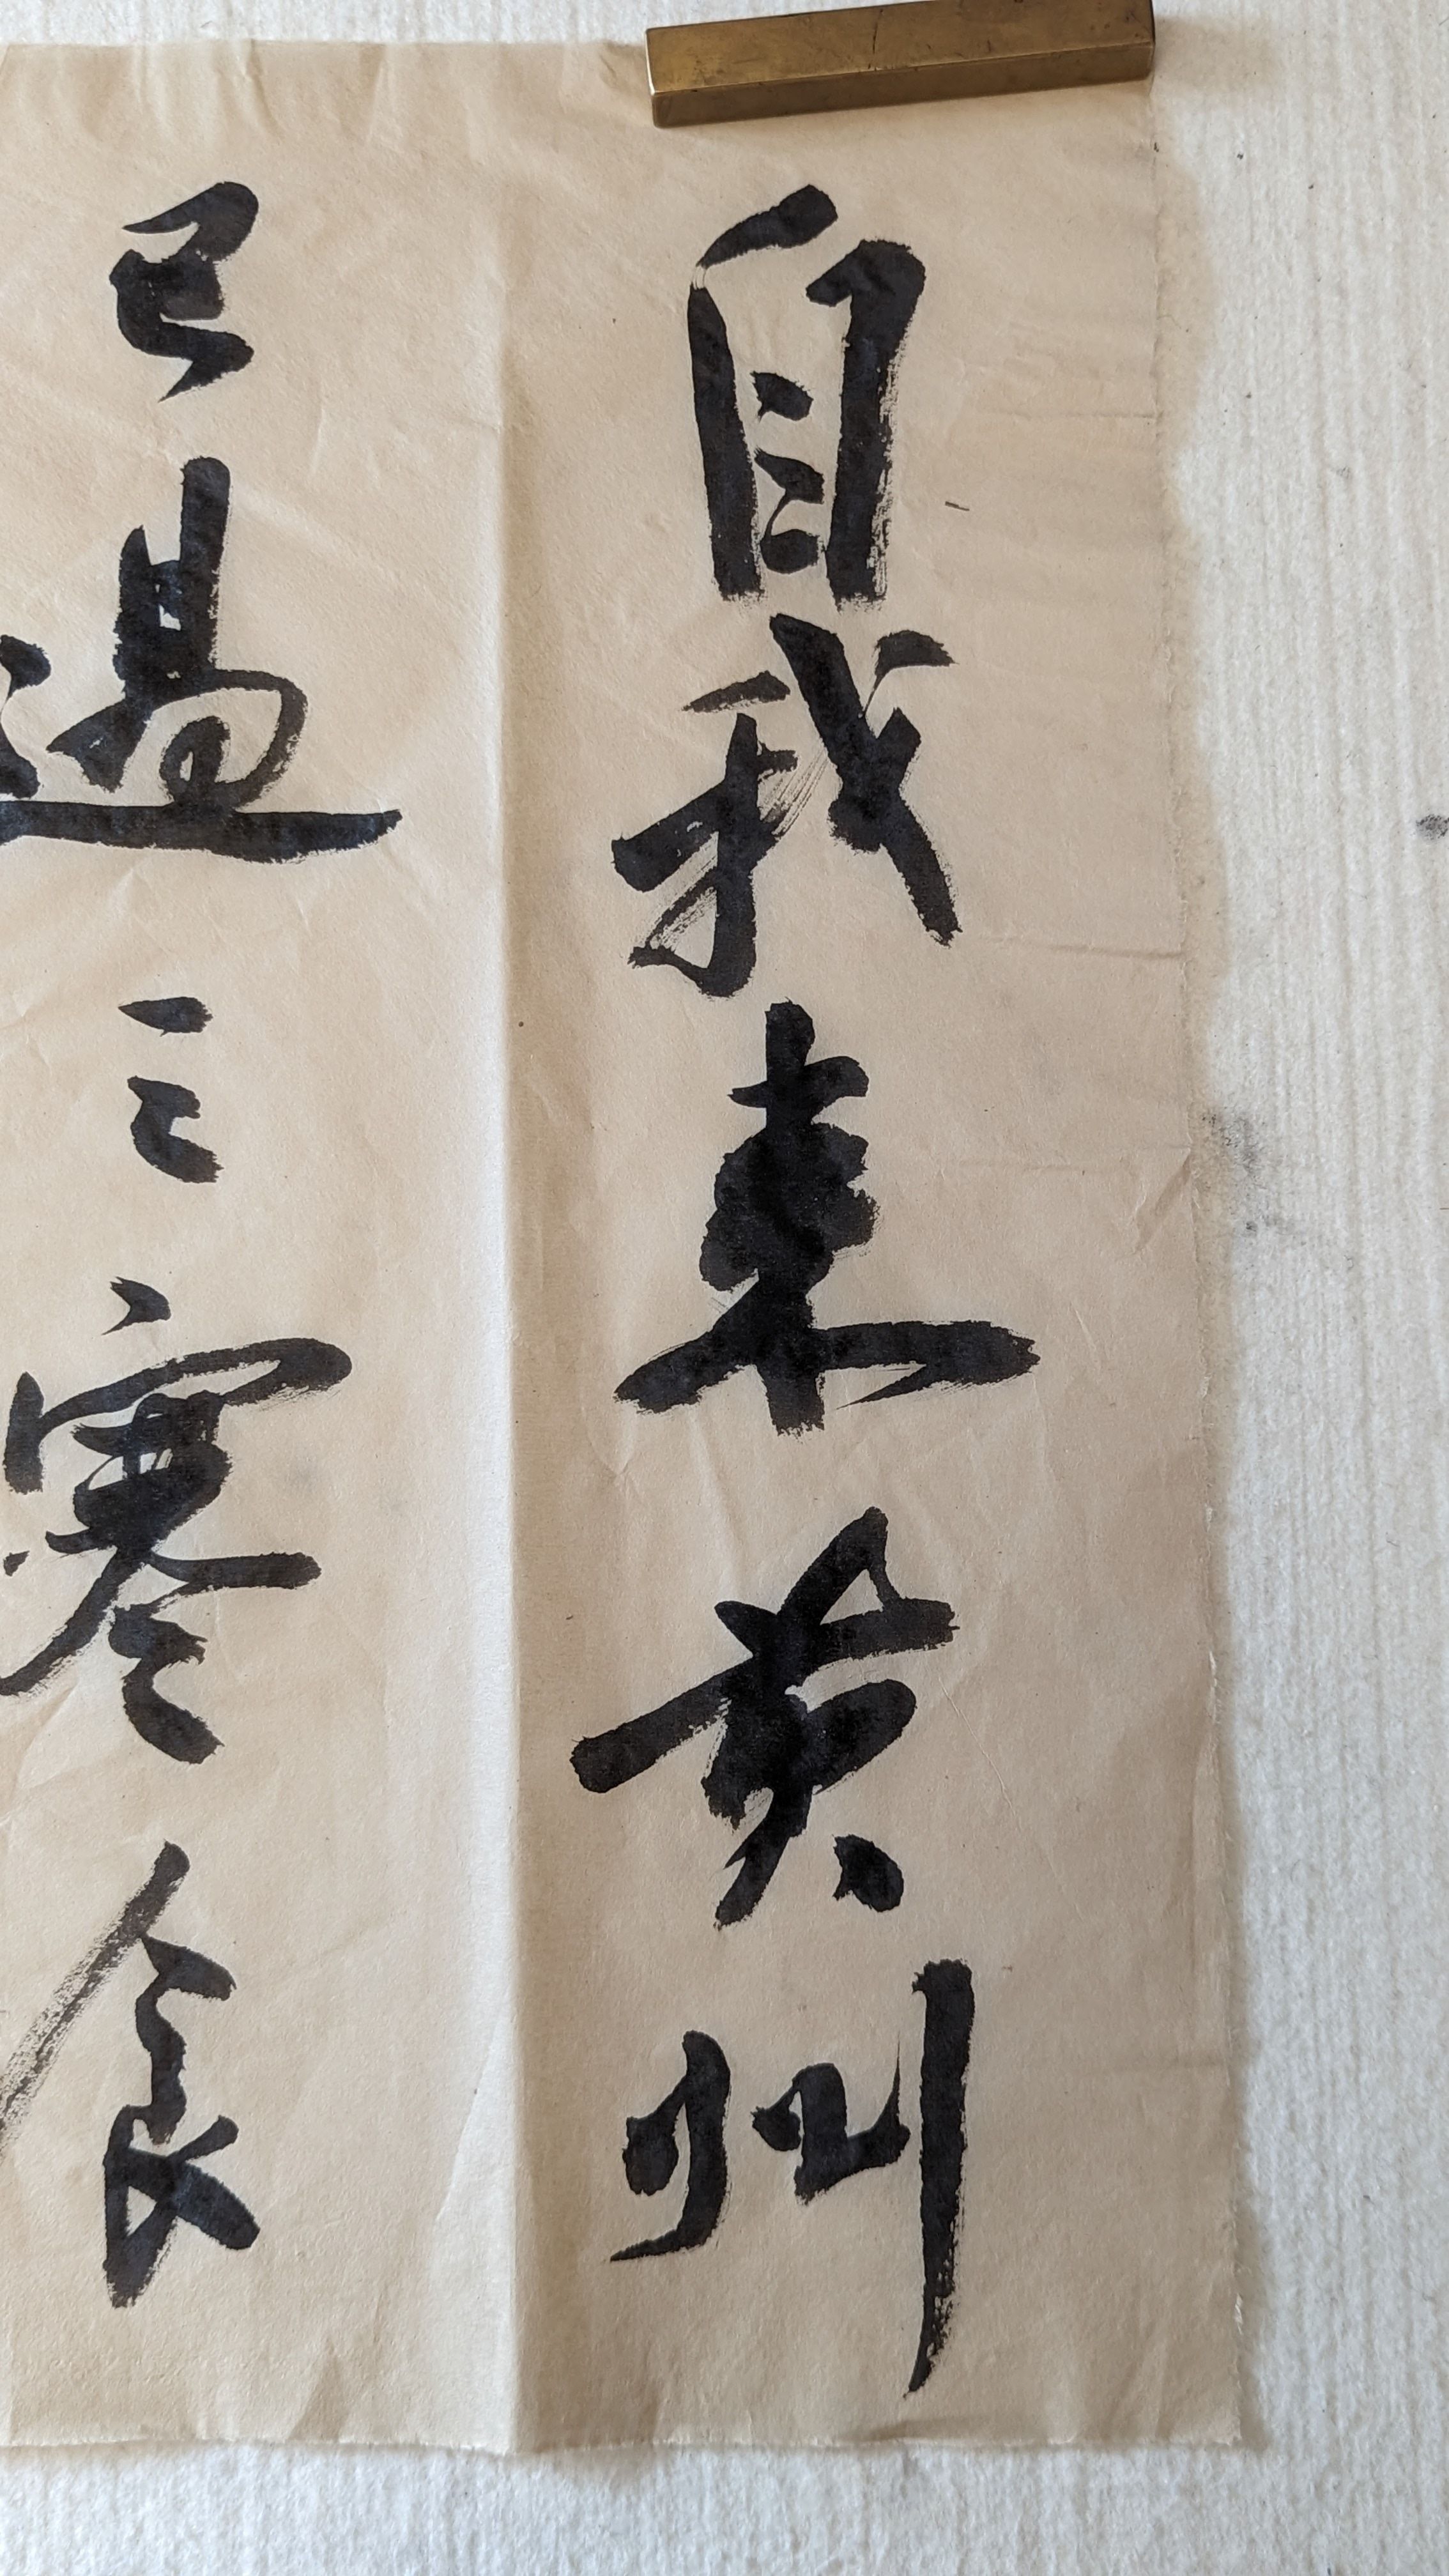 自我來黃州
已過三寒食